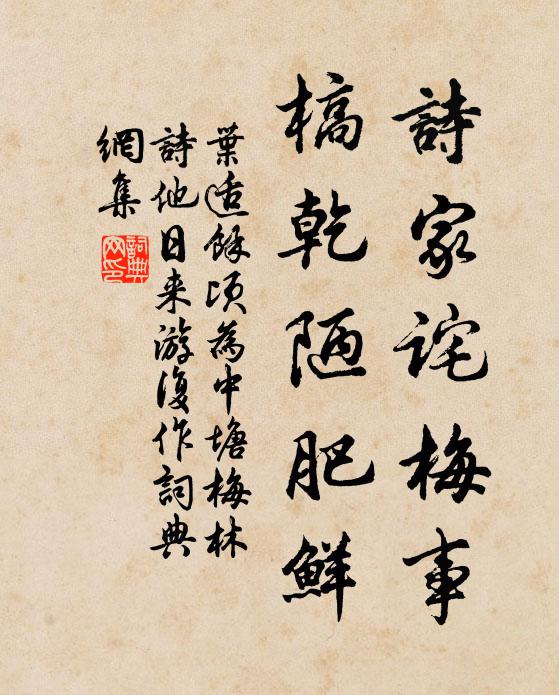 詩家詫梅事
槁乾陋肥鮮
葉适餘頃為中塘梅林
詩他日来游復作詞典
網集
詞典網印